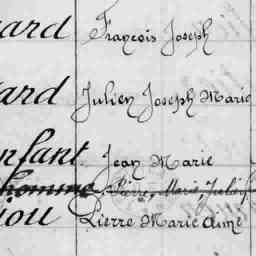 ard François Joseph
ard Julien Joseph Marie
nfant Jean Marie
homme Pierre, Marie, Julien
iou Pierre Marie Aimé